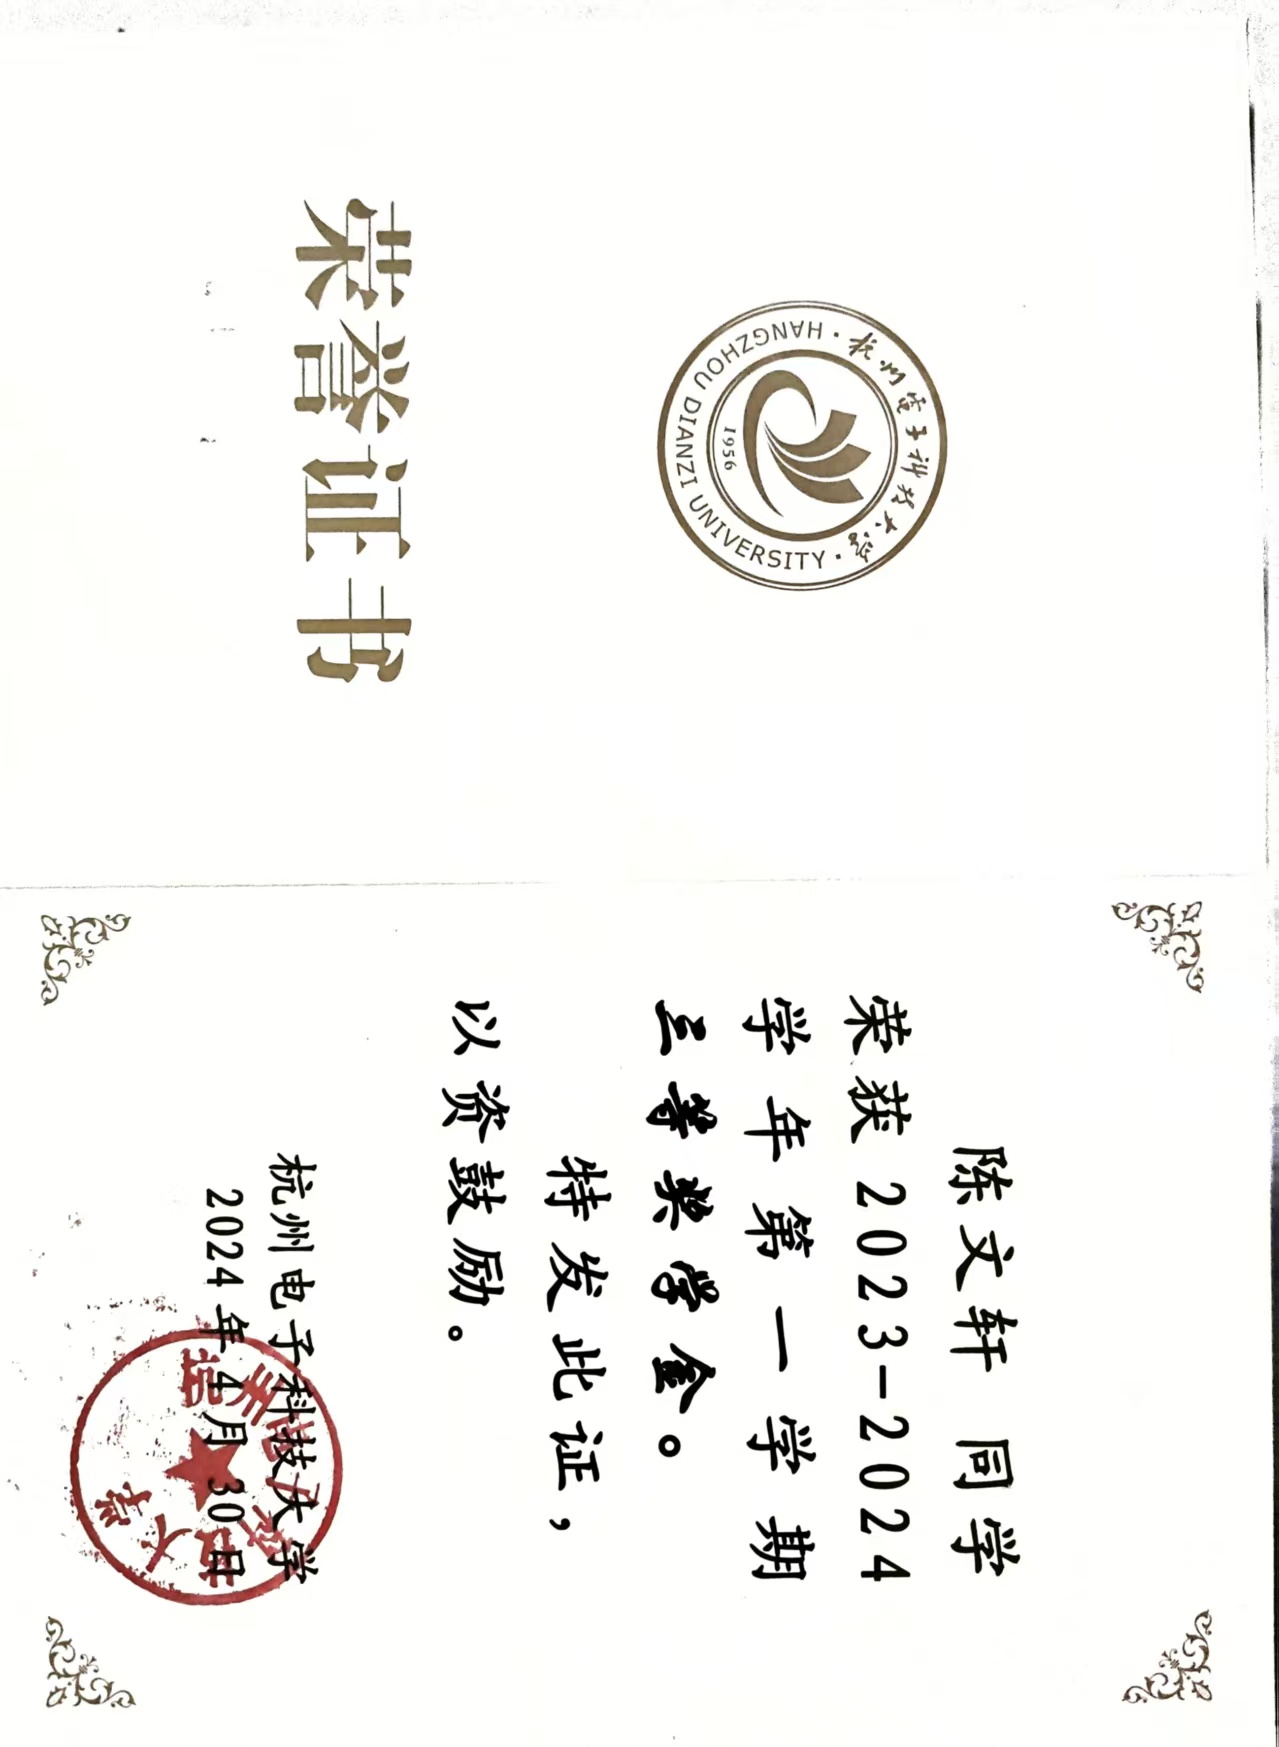 杭州電子科技大学
HANGZHOU DIANZI UNIVERSITY
1956
荣誉证书
陈文轩 同学
荣获 2023-2024
学年第一学期
三等奖学金。
特发此证,
以资鼓励。
杭州电子科技大学
2024年4月30日
杭州电子科技大学